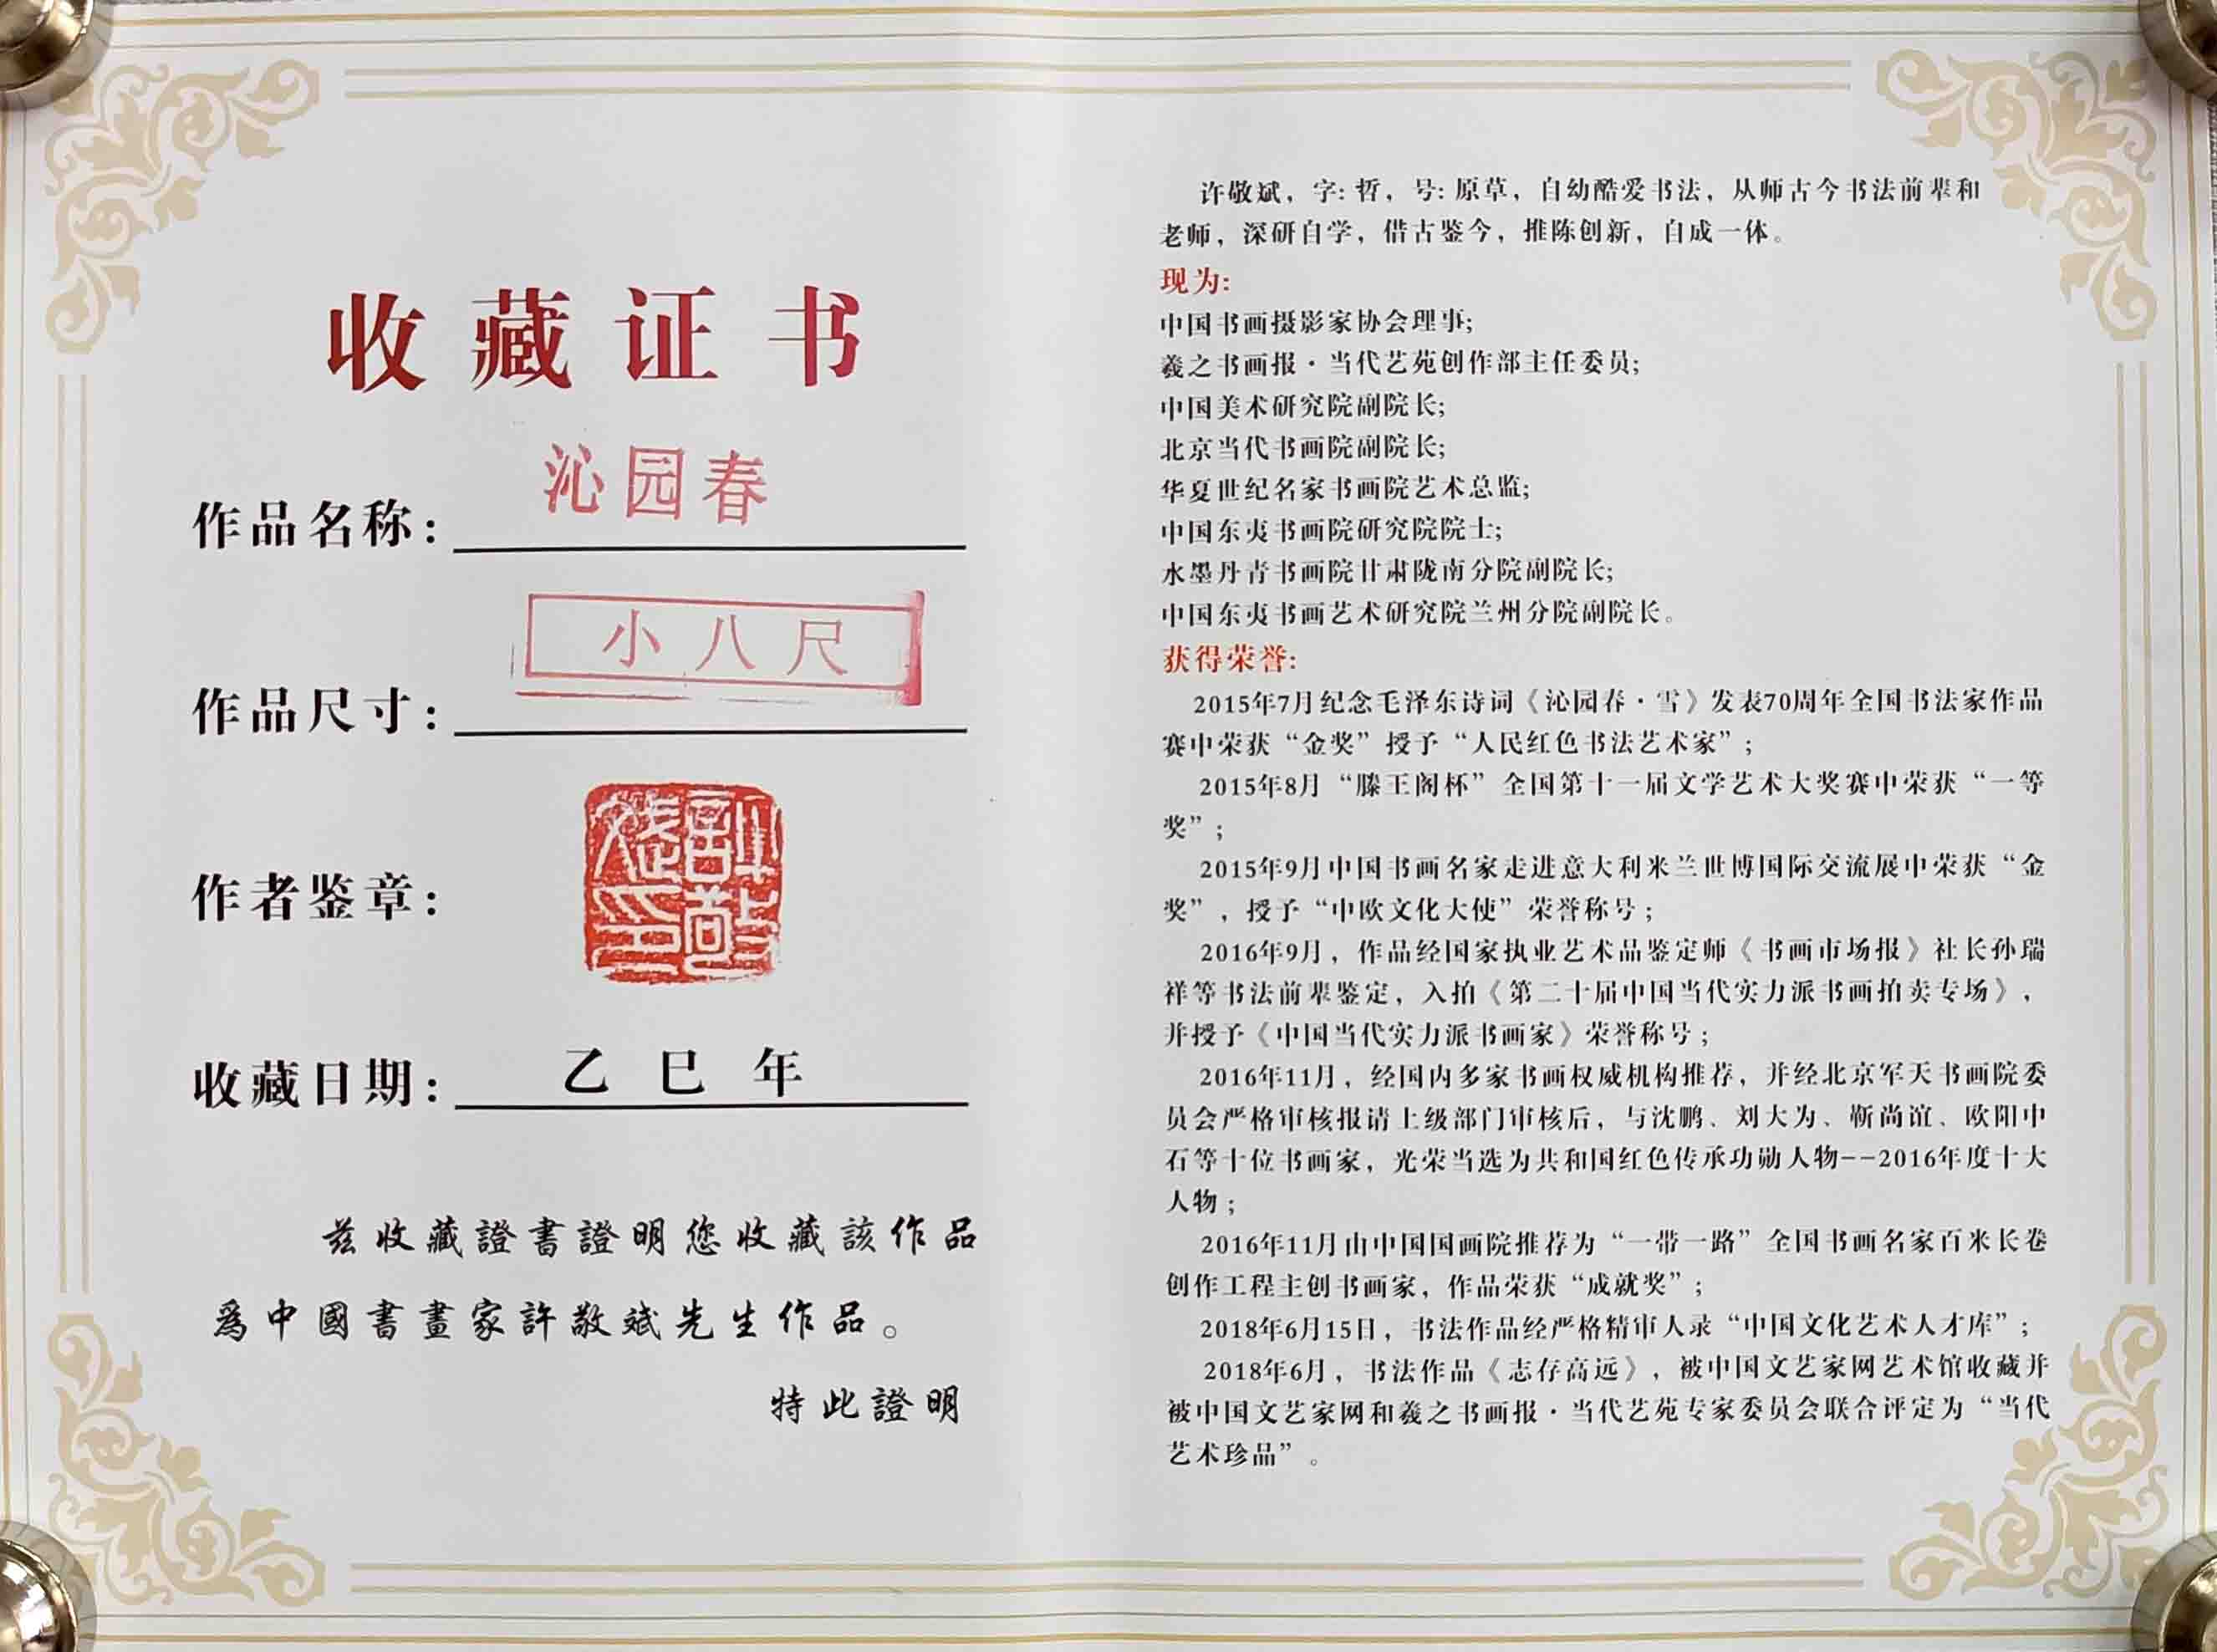 收藏证书
作品名称: 沁园春
作品尺寸: 小八尺
作者鉴章:
许敬斌印
收藏日期: 乙巳年
兹收藏證書證明您收藏該作品
為中國書畫家許敬斌先生作品。
特此證明
许敬斌，字: 哲，号: 原草，自幼酷爱书法，从师古今书法前辈和
老师，深研自学，借古鉴今，推陈创新，自成一体。
现为:
中国书画摄影家协会理事;
羲之书画报·当代艺苑创作部主任委员;
中国美术研究院副院长;
北京当代书画院副院长;
华夏世纪名家书画院艺术总监;
中国东夷书画院研究院院士;
水墨丹青书画院甘肃陇南分院副院长;
中国东夷书画艺术研究院兰州分院副院长。
获得荣誉:
2015年7月纪念毛泽东诗词《沁园春·雪》发表70周年全国书法家作品
赛中荣获“金奖”授予“人民红色书法艺术家”;
2015年8月“滕王阁杯”全国第十一届文学艺术大奖赛中荣获“一等
奖”;
2015年9月中国书画名家走进意大利米兰世博国际交流展中荣获“金
奖”，授予“中欧文化大使”荣誉称号;
2016年9月，作品经国家执业艺术品鉴定师《书画市场报》社长孙瑞
祥等书法前辈鉴定，入拍《第二十届中国当代实力派书画拍卖专场》，
并授予《中国当代实力派书画家》荣誉称号;
2016年11月，经国内多家书画权威机构推荐，并经北京军天书画院委
员会严格审核报请上级部门审核后，与沈鹏、刘大为、靳尚谊、欧阳中
石等十位书画家，光荣当选为共和国红色传承功勋人物--2016年度十大
人物;
2016年11月由中国国画院推荐为“一带一路”全国书画名家百米长卷
创作工程主创书画家，作品荣获“成就奖”;
2018年6月15日，书法作品经严格精审人录“中国文化艺术人才库”;
2018年6月，书法作品《志存高远》，被中国文艺家网艺术馆收藏并
被中国文艺家网和羲之书画报·当代艺苑专家委员会联合评定为“当代
艺术珍品”。